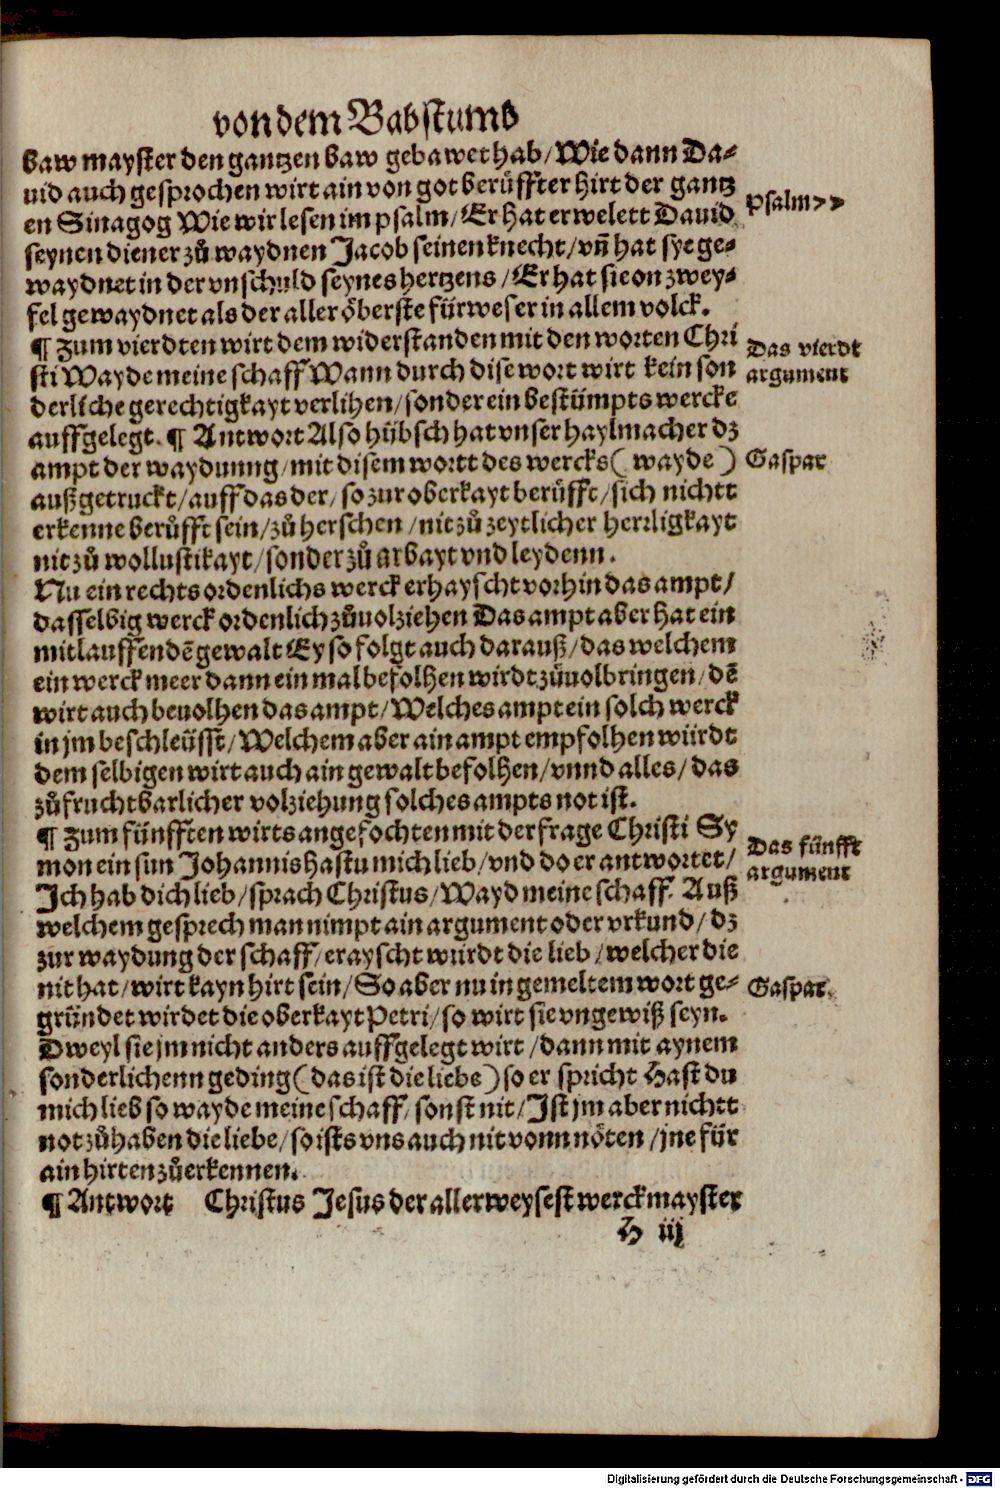 von dem Babstumb
baw mayster den gantzen baw gebawet hab/ Wie dann Da⸗
uid auch gesprochen wirt ain von got berůffter hirt der gantz
en Sinagog Wie wir lesen im psalm/ Er hat erwelett Dauid
Psalm 77
seynen diener zů waydnen Jacob seinen knecht/ vñ hat sye ge⸗
waydnet in der vnschuld seynes hertzens/ Er hat sie on zwey⸗
fel gewaydnet als der aller öberste fürweser in allem volck.
¶ Zum vierdten wirt dem widerstanden mit den worten Chri
Das vierdt
sti Wayde meine schaff Wann durch dise wort wirt kein son
argument
derliche gerechtigkayt verlihen/ sonder ein bestümpts wercke
auffgelegt. ¶ Antwort Also hübsch hat vnser haylmacher dz
ampt der waydnung/ mit disem wortt des wercks (wayde)
Gaspar
außgetruckt/ auff das der/ so zur oberkayt berůfft/ sich nichtt
erkenne berůfft sein/ zů herschen/ nit zů zeytlicher herrligkayt
nit zů wollustikayt/ sonder zů arbayt vnd leydenn.
Nu ein rechts ordenlichs werck erhayscht vorhin das ampt/
dasselbig werck ordenlich zůuolziehen Das ampt aber hat ein
mitlauffendē gewalt Ey so folgt auch darauß/ das welchem
ein werck meer dann ein mal befolhen wirdt zůuolbringen/ dē
wirt auch beuolhen das ampt/ Welches ampt ein solch werck
in jm beschleüsst/ Welchem aber ain ampt empfolhen würdt
dem selbigen wirt auch ain gewalt befolhen/ vnnd alles/ das
zů fruchtbarlicher volziehung solches ampts not ist.
¶ Zum fünfften wirts angefochten mit der frage Christi Sy
Das fünfft
mon ein sun Johannis hastu mich lieb/ vnd do er antwortet/
argument
Ich hab dich lieb/ sprach Christus/ Wayd meine schaff. Auß
welchem gesprech man nimpt ain argument oder vrkund/ dz
zur waydung der schaff/ erayscht wurdt die lieb/ welcher die
nit hat/ wirt kayn hirt sein/ So aber nu in gemeltem wort ge⸗
Gaspar.
gründet wirdet die oberkayt Petri/ so wirt sie vngewiß seyn.
Dweyl sie jm nicht anders auffgelegt wirt/ dann mit aynem
sonderlichenn geding (das ist die liebe) so er spricht Hast du
mich lieb so wayde meine schaff/ sonst nit/ Ist jm aber nichtt
not zů haben die liebe/ so ists vns auch nit vonn nöten/ jne für
ain hirten zů erkennen.
¶ Antwort Christus Jesus der aller weysest werckmayster
H iij
Digitalisierung gefördert durch die Deutsche Forschungsgemeinschaft - DFG